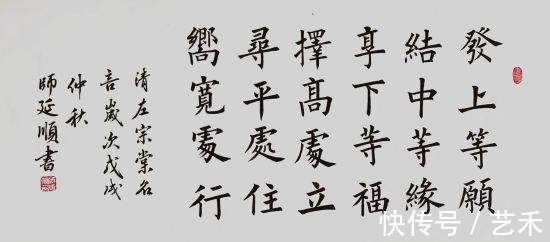 發上等願
結中等緣
享下等福
擇高處立
尋平處住
嚮寬處行
清左宗棠名
言歲次戊戌
仲秋
師延順書
快传号 / 艺禾